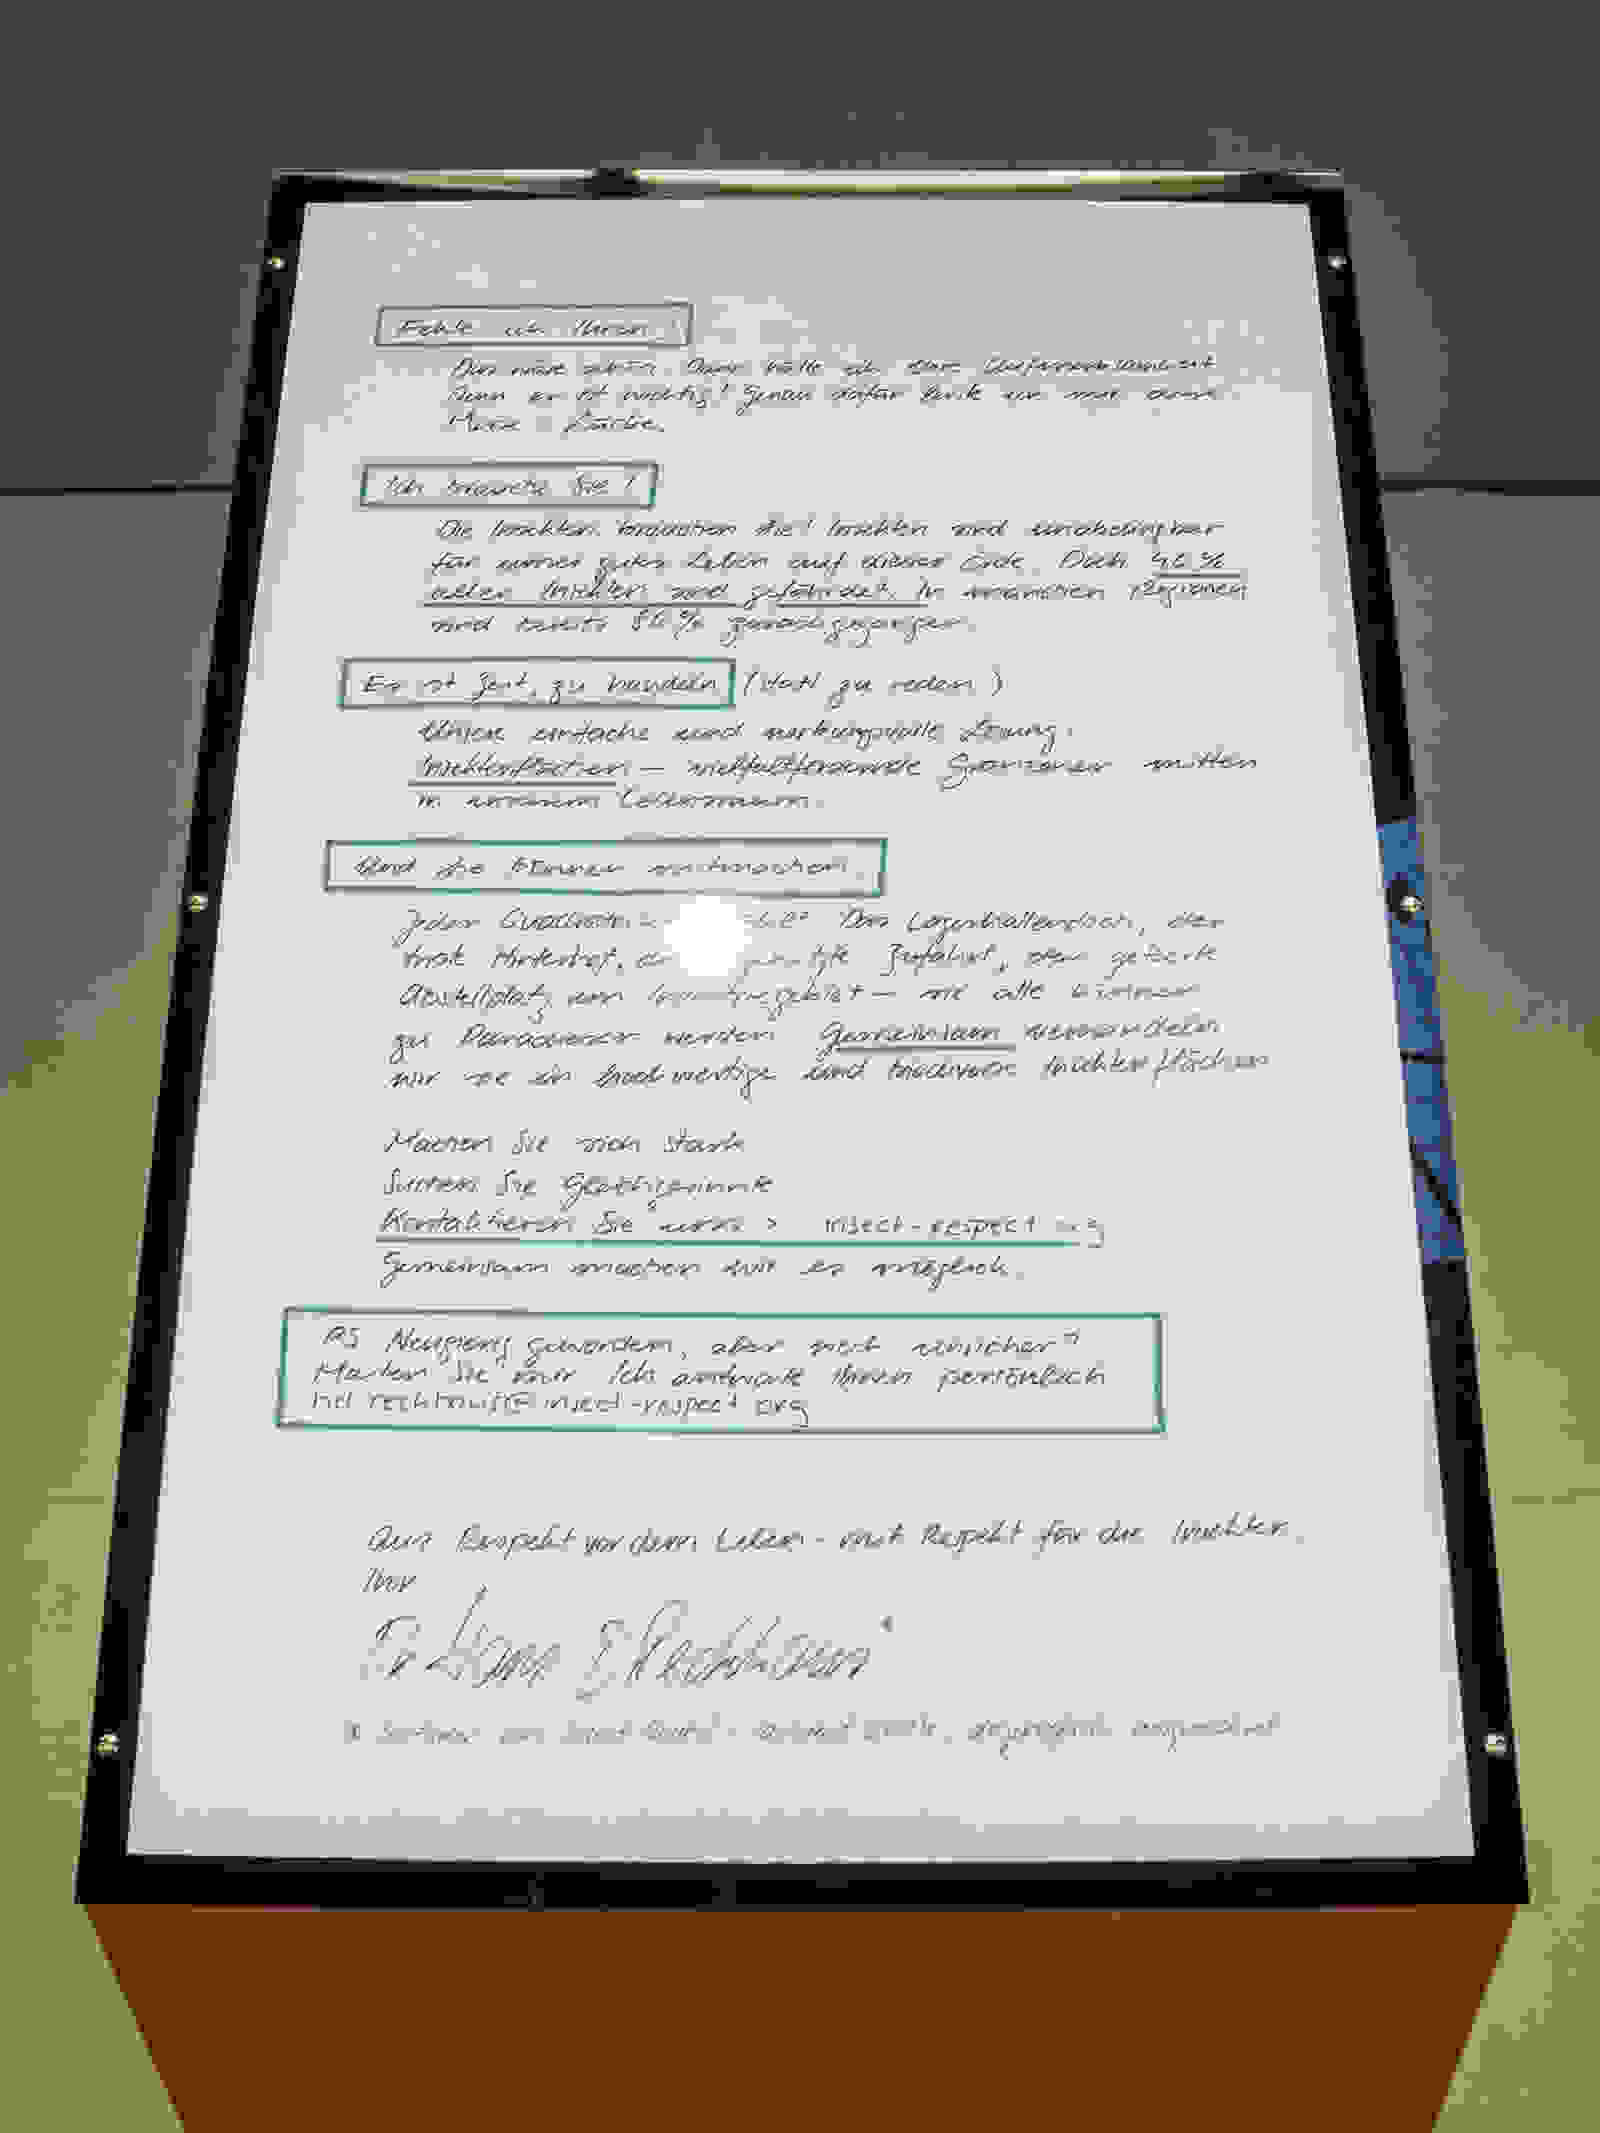 Fehle ich Ihnen?
Das wäre schön. Dann hätte ich Ihre Aufmerksamkeit
Denn es ist wichtig! Genau dafür
Ich brauche Sie!
Die Insekten brauchen Sie! Insekten sind unabdingbar
für unser gutes Leben auf dieser Erde. Doch 40%
aller Insekten sind gefährdet. In manchen Regionen
sind bereits 80% zurückgegangen.
Es ist Zeit, zu handeln (statt zu reden)
Unsere einfache und wirkungsvolle Lösung:
Insektenflächen – vielfaltfördernde Grünzonen mitten
in unserem Lebensraum.
Und Sie können mitmachen!
Jeder Das Lagerhallendach, der
triste Hinterhof, Zufahrt, der geteerte
Abstellplatz im Industriegebiet – sie alle können
zu Paradiesen werden. Gemeinsam verwandeln
wir sie in hochwertige und Insektenflächen
Machen Sie sich stark
Suchen Sie Gleichgesinnte
Kontaktieren Sie uns > insect-respect.org
Gemeinsam machen wir es möglich.
PS Neugierig geworden, aber noch unsicher?
Mailen Sie mir. Ich antworte Ihnen persönlich
hd.reckhaus@insect-respect.org
Aus Respekt vor dem Leben – mit Respekt für die Insekten.
Ihr
Dr. Hans D. Reckhaus*